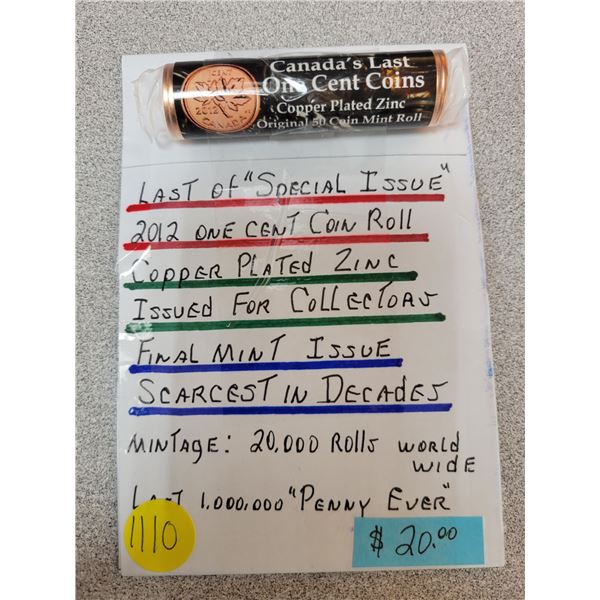 CENT
2012
CANADA
Canada's Last
One Cent Coins
Copper Plated Zinc
Original 50 Coin Mint Roll
LAST OF "SPECIAL ISSUE"
2012 ONE CENT COIN ROLL
COPPER PLATED ZINC
ISSUED FOR COLLECTORS
FINAL MINT ISSUE
SCARCEST IN DECADES
MINTAGE: 20,000 ROLLS WORLD
WIDE
LAST 1,000,000 "PENNY EVER"
1110
$ 20.00